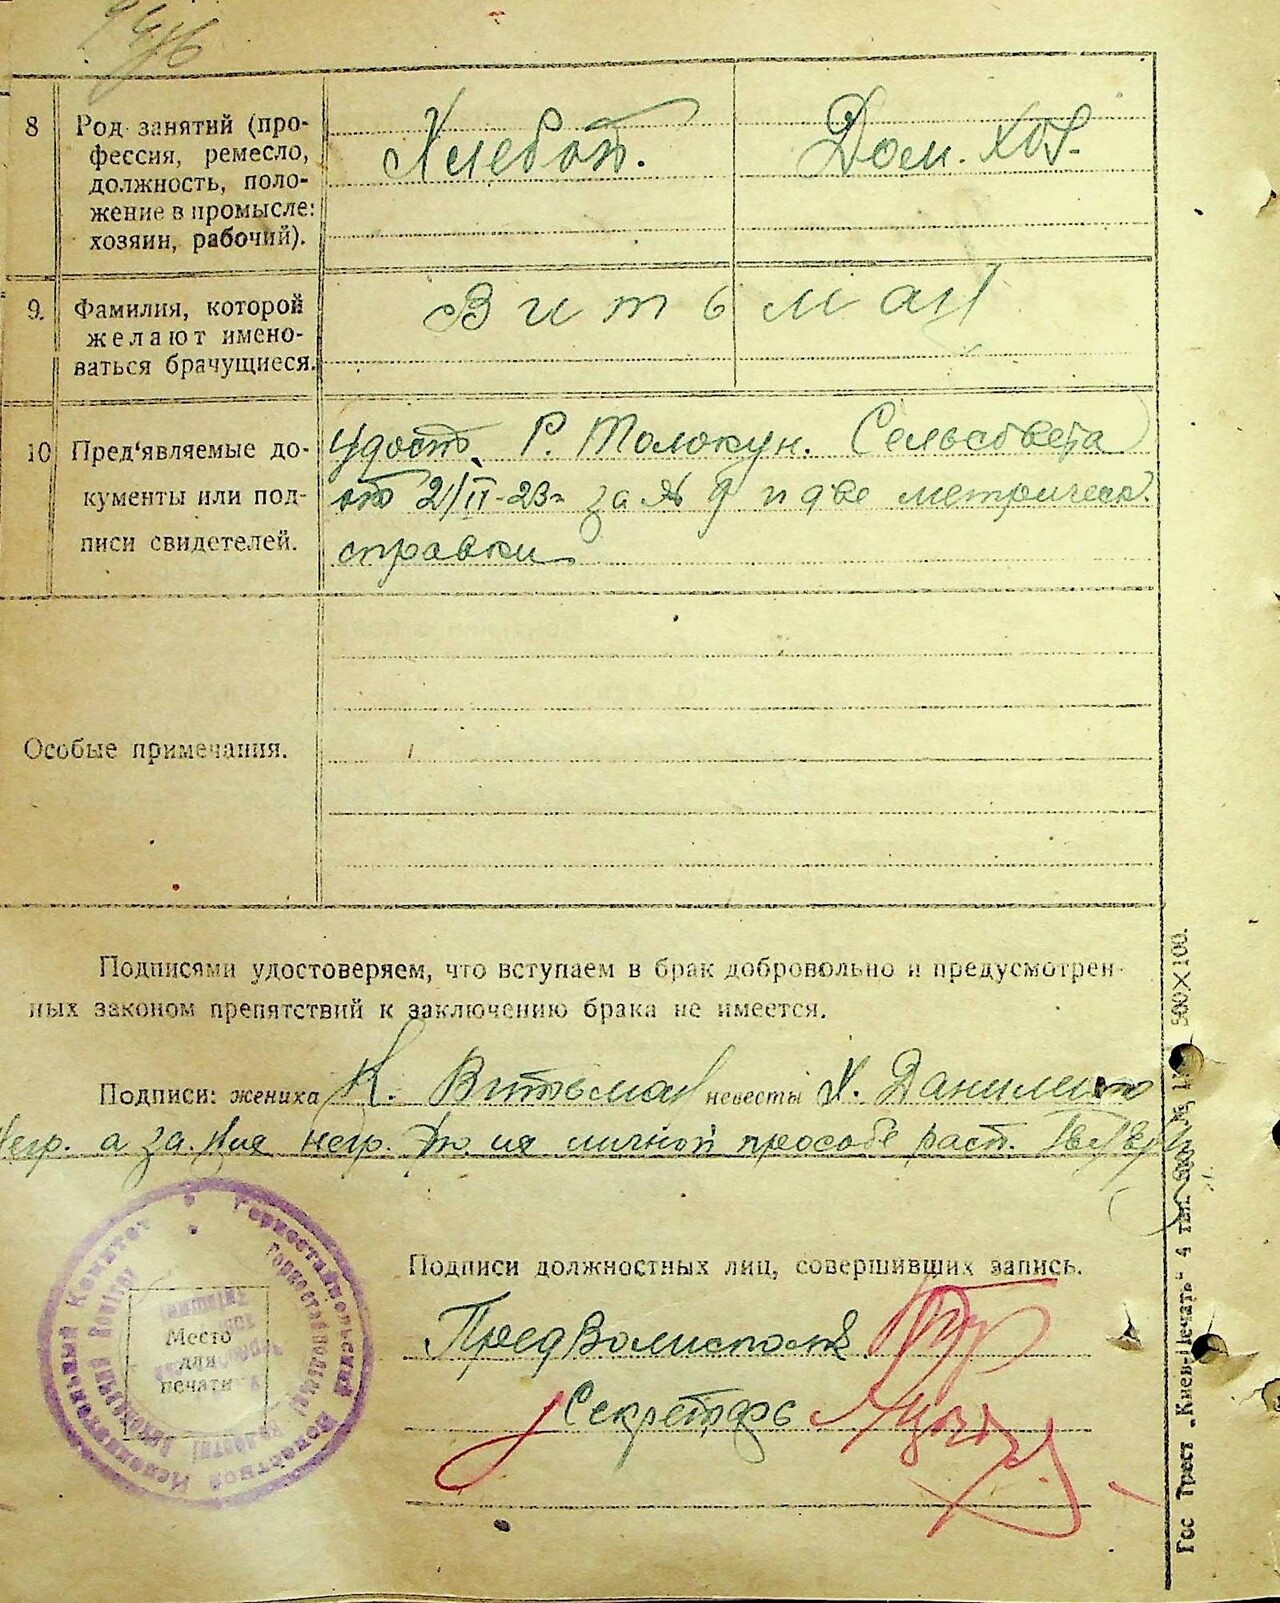 8 Род занятий (про-
фессия, ремесло,
должность, поло-
жение в промысле:
хозяин, рабочий).
Хлебоп. Дом. хоз.
9. Фамилия, которой
желают имено-
ваться брачущиеся.
Витьман
10 Пред'являемые до-
кументы или под-
писи свидетелей.
Удост. Р. Толокун. Сельсовета
от 21/II-23 за № 9 и две метрическ.
справки
Особые примечания.
Подписями удостоверяем, что вступаем в брак добровольно и предусмотрен-
ных законом препятствий к заключению брака не имеется.
Подписи: жениха К. Витьман невесты Х. Даниленко
негр. а за. личной просьбе раст.
Подписи должностных лиц, совершивших запись.
Предволисполк.
Секретарь
Место
для
печати
Горностайпольский Волостной Исполнительный Комитет
Гос Трест „Киев-Печать" 4 500×100.